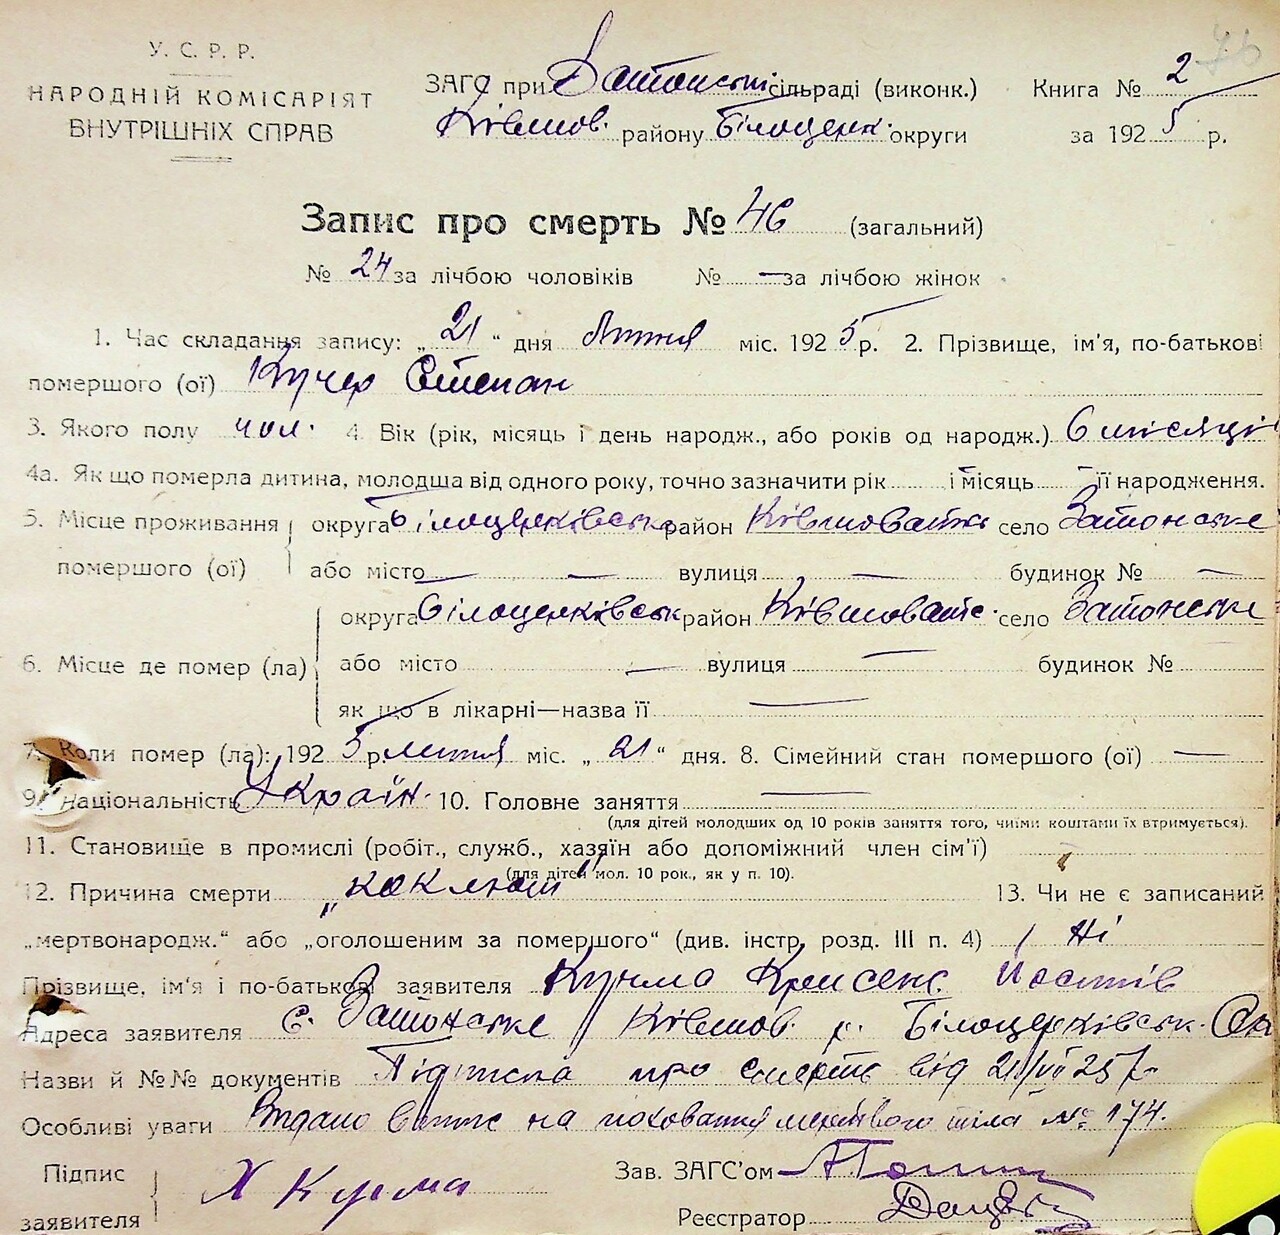 76
У. С. Р. Р.
НАРОДНІЙ КОМІСАРІЯТ
ВНУТРІШНІХ СПРАВ
ЗАГС при Затонській сільраді (виконк.) Книга № 2
Ківшов. району Білоцерк. округи за 1925 р.
Запис про смерть № 46 (загальний)
№ 24 за лічбою чоловіків № — за лічбою жінок
1. Час складання запису: „21“ дня Липня міс. 1925 р. 2. Прізвище, ім'я, по-батькові
помершого (ої) Кучер Степан
3. Якого полу чол. 4. Вік (рік, місяць і день народж., або років од народж.) 6 місяці
4а. Як що померла дитина, молодша від одного року, точно зазначити рік — і місяць — її народження.
5. Місце проживання округа Білоцерківськ район Ківшоватськ село Затонське
помершого (ої) або місто — — вулиця — будинок № —
округа Білоцерківськ район Ківшоватс. село Затонське
6. Місце де помер (ла) або місто — вулиця — будинок №
як що в лікарні—назва її —
7. Коли помер (ла): 1925 р. липня міс. „21“ дня. 8. Сімейний стан помершого (ої) —
9. Національність Україн. 10. Головне заняття —
(для дітей молодших од 10 років заняття того, чиїми коштами їх втримується).
11. Становище в промислі (робіт., служб., хазяїн або допоміжний член сім'ї)
(для дітей мол. 10 рок., як у п. 10).
12. Причина смерти „коклюш“ 13. Чи не є записаний
„мертвонародж.“ або „оголошеним за помершого“ (див. інстр. розд. III п. 4) Ні
Прізвище, ім'я і по-батькові заявителя Курма
Адреса заявителя с. Затонське Ківшов. р. Білоцерківськ. Ок
Назви й №№ документів Підписка про смерть від 21/VII 25 р.
Особливі уваги Видано витяг на поховання мертвого тіла № 174.
Підпис
заявителя Х Курма
Зав. ЗАГС'ом
Реєстратор